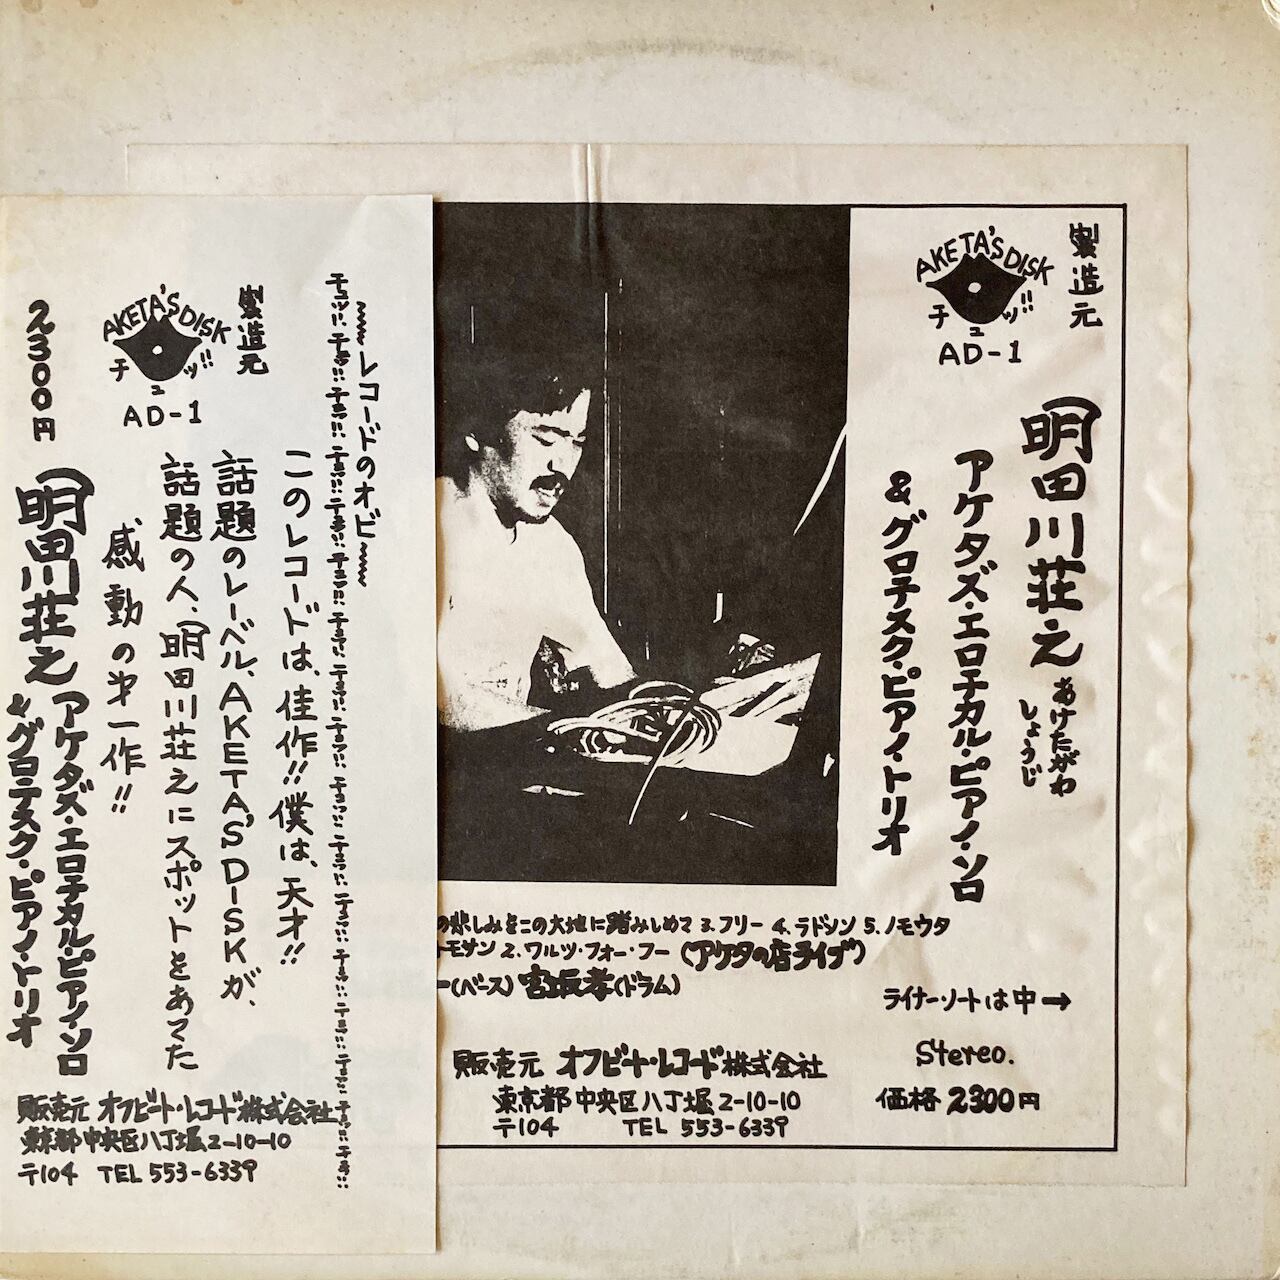 製造元
AKETA'S DISK
チュッ!!
AD-1
明田川荘之
あけたがわ
しょうじ
アケタズ・エロチカル・ピアノ・ソロ
&グロテスク・ピアノ・トリオ
の悲しみをこの大地に踏みしめて 3.フリー 4.ラドシソ 5.ノモウタ
2.ワルツ・フォー・フー (アケタの店ライブ)
ー(ベース) 宮坂孝(ドラム)
ライナーノートは中→
Stereo.
価格 2300円
販売元 オフビート・レコード株式会社
東京都中央区八丁堀2-10-10
〒104 TEL 553-6339
〜レコードのオビ〜
このレコードは、佳作!!僕は、天才!!
話題のレーベル、AKETA'S DISKが、
話題の人、明田川荘之にスポットをあてた
感動の才一作!!
製造元
AKETA'S DISK
チュッ!!
AD-1
2300円
明田川荘之 アケタズ・エロチカル・ピアノ・ソロ
&グロテスク・ピアノ・トリオ
販売元 オフビート・レコード株式会社
東京都中央区八丁堀2-10-10
〒104 TEL 553-6339